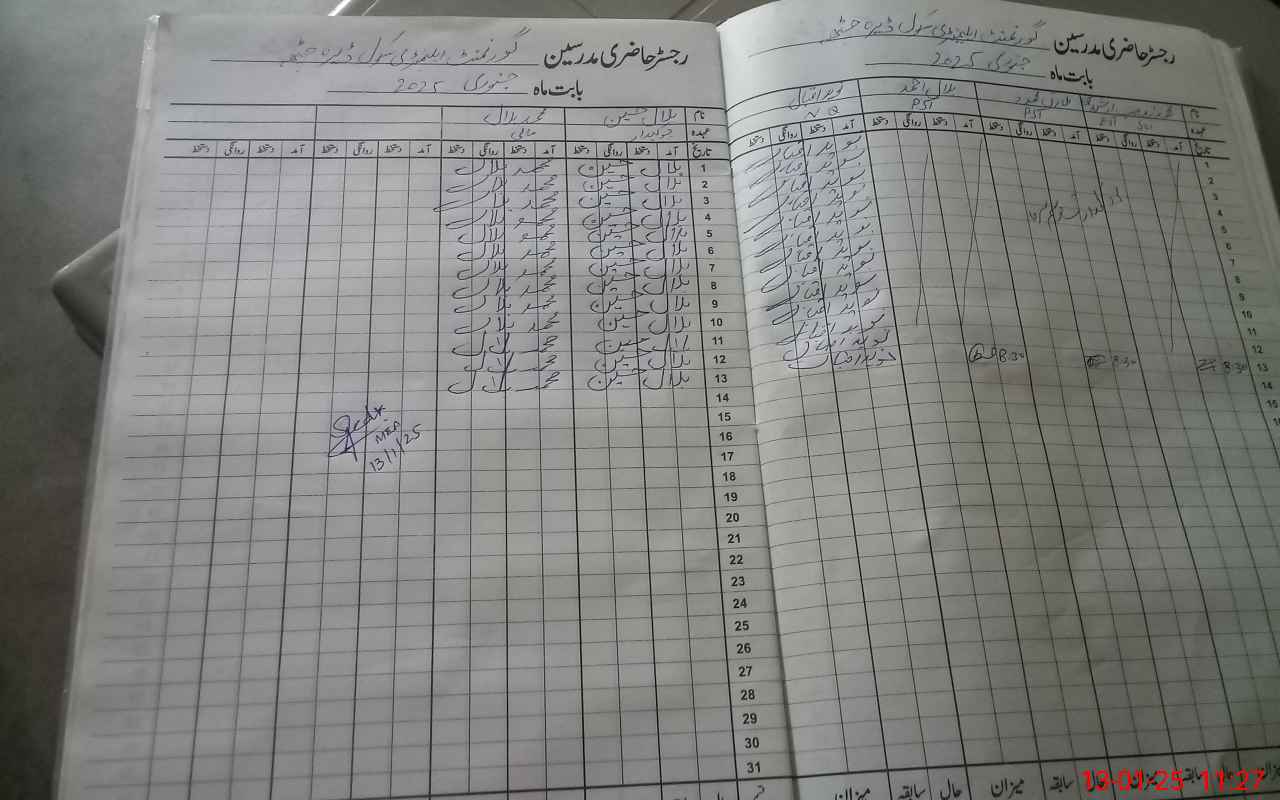 رجسٹر حاضری مدرسین گورنمنٹ ایلیمنٹری سکول ڈیرہ جٹی
بابت ماہ جنوری 2025
نام نوید اقبال بلال احمد طارق محمود
عہدہ N Q PST PST
تاریخ آمد روانگی دستخط آمد روانگی دستخط آمد روانگی دستخط آمد روانگی دستخط
1 نوید اقبال
2 نوید اقبال
3 نوید اقبال
4 نوید اقبال
5 نوید اقبال
6 نوید اقبال
7 نوید اقبال
8 نوید اقبال
9 نوید اقبال
10 نوید اقبال
11 نوید اقبال
12 نوید اقبال
13 8:30 8:30 8:30 نوید اقبال
14
15
میزان حال سابقہ میزان حال سابقہ میزان حال سابقہ میزان
رجسٹر حاضری مدرسین گورنمنٹ ایلیمنٹری سکول ڈیرہ جٹی
بابت ماہ جنوری 2025
نام بلال حسین محمد بلال
عہدہ چوکیدار مالی
تاریخ آمد روانگی دستخط آمد روانگی دستخط آمد روانگی دستخط آمد روانگی دستخط
1 بلال حسین محمد بلال
2 بلال حسین محمد بلال
3 بلال حسین محمد بلال
4 بلال حسین محمد بلال
5 بلال حسین محمد بلال
6 بلال حسین محمد بلال
7 بلال حسین محمد بلال
8 بلال حسین محمد بلال
9 بلال حسین محمد بلال
10 بلال حسین محمد بلال
11 بلال حسین محمد بلال
12 بلال حسین محمد بلال
13 بلال حسین محمد بلال
14
15
16
17
18
19
20
21
22
23
24
25
26
27
28
29
30
31
MEA
13/1/25
13-01-25 11:27